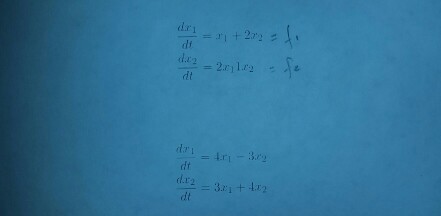 dx₁/dt = x₁ + 2x₂ = f₁
dx₂/dt = 2x₁1x₂ = f
dx₁/dt = 4x₁ − 3x₂
dx₂/dt = 3x₁ + 4x₂